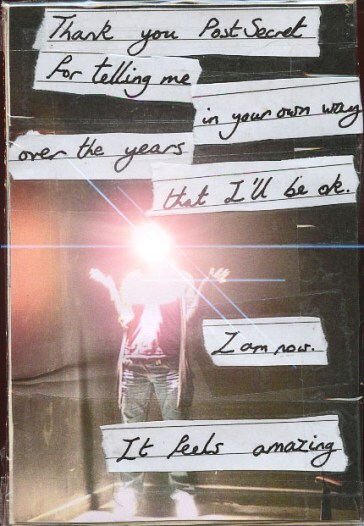 Thank you PostSecret
for telling me
in your own way
over the years
that I'll be ok.
I am now.
It feels amazing